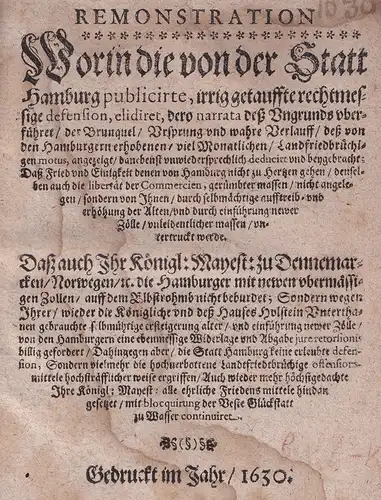 1630
REMONSTRATION
Worin die von der Statt
Hamburg publicirte, irrig getauffte rechtmes-
sige defension, elidiret, dero narrata deß Vngrunds vber-
führet / der Brunquel / Vrsprung vnd wahre Verlauff / deß von
den Hamburgern erhobenen / viel Monatlichen / Landfriedbrüchi-
gen motus, angezeigt / danebenst vnwiedersprechlich deducirt vnd beygebracht:
Daß Fried vnd Einigkeit denen von Hamburg nicht zu Hertzen gehen / densel-
ben auch die libertät der Commercien, gerümbter massen / nicht angele-
gen / sondern von Ihnen / durch selbmächtige aufftreib- vnd
erhöhung der Alten / vnd durch einführung newer
Zölle / vnleidentlicher massen / vn-
tertruckt werde.
Daß auch Ihr Königl: Mayest: zu Dennemar-
cken / Norwegen / ec. die Hamburger mit newen vbermässi-
gen Zollen / auff dem Elbstrohmb nicht beburdet; Sondern wegen
Ihrer / wieder die Königliche vnd deß Hauses Holstein Vntertha-
nen gebrauchte selbmütige ersteigerung alter / vnd einführung newer Zölle /
von den Hamburgern eine ebenmessige Widerlage vnd Abgabe jure retorsionis
billig gefordert / Dahingegen aber / die Statt Hamburg keine erleubte defen-
sion, Sondern vielmehr die hochverbottene Landtfriedbrüchige offensions-
mittele hochsträfflicher weise ergriffen / Auch wieder mehr höchstgedachte
Ihre Königl: Mayest: alle ehrliche Friedens mittele hindan
gesetzet / mit blocquirung der Veste Glückstatt
zu Wasser continuiret.
§(§)§
Gedruckt im Jahr / 1630.